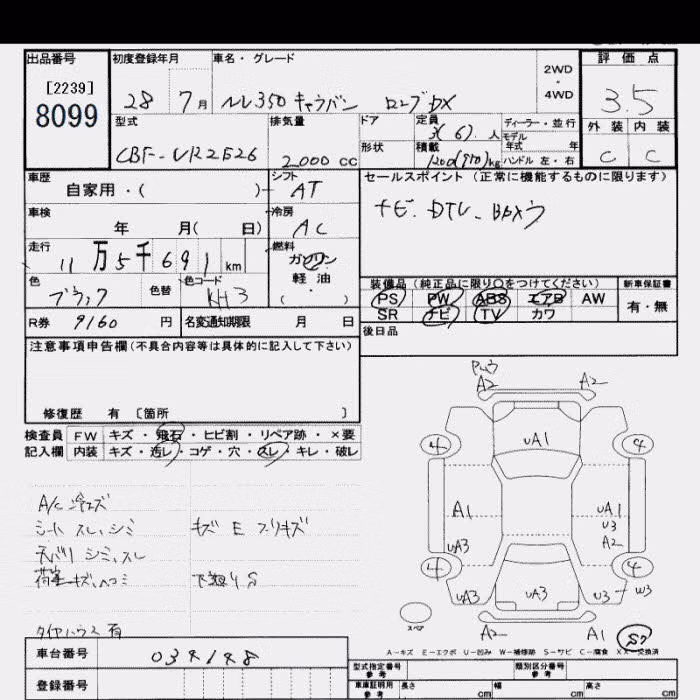 出品番号 初度登録年月 車名・グレード 2WD ・ 4WD 評価点
[2239]
8099 28 7月 NV350キャラバン ロングDX 3.5
型式 排気量 ドア 定員 3(6)人 ディーラー・並行 外装 内装
モデル年式 年
CBF-VR2E26 2,000cc 形状 積載 kg ハンドル 左・右 C C
車歴 シフト セールスポイント(正常に機能するものに限ります)
自家用・( ) AT
車検 冷房 ナビ. DTV.
年 月( 日) AC
走行 燃料
11万5千691km ガソリン
軽油
・
( )
装備品(純正品に限り○をつけてください) 新車保証書
色 色替 色コード
ブラック KH3
PS PW ABS エアB AW 有・無
SR ナビ TV カワ
R券 9160円 名変通知期限 月 日 後日品
注意事項申告欄(不具合内容等は具体的に記入して下さい)
修復歴 有 [箇所 ]
検査員 FW キズ・飛石・ヒビ割・リペア跡・×要
記入欄 内装 キズ・汚レ・コゲ・穴・スレ・キレ・破レ
A2 A2
4 UA1 4
A/C冷エズ
シート スレ,シミ キズ E
A1 UA1
U3
A2
UA3
天バリ シミ,スレ
荷室キズ,ヘコミ 下廻りS
4 4
UA3 UA3 U3 W3
タイヤハウス 有
スペア A2 A1 S2
A-キズ E-エクボ U-凹み W-補修跡 S-サビ C-腐食 XX-交換済
車台番号 034148
登録番号
型式指定番号 参考 類別区分番号 参考
車庫証明用 参考 長さ cm 幅 cm 高さ cm